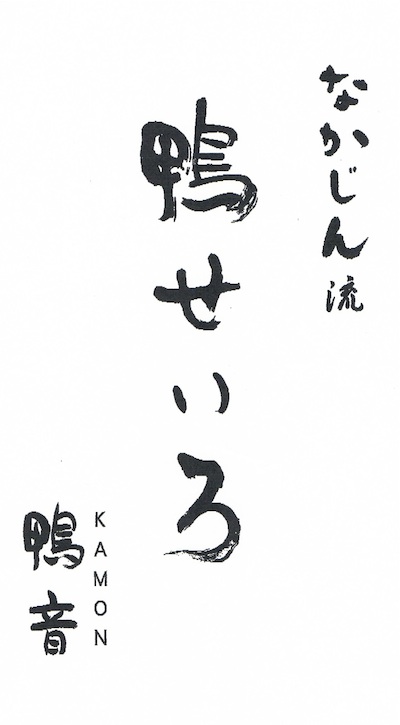 なかじん流
鴨せいろ
KAMON
鴨音